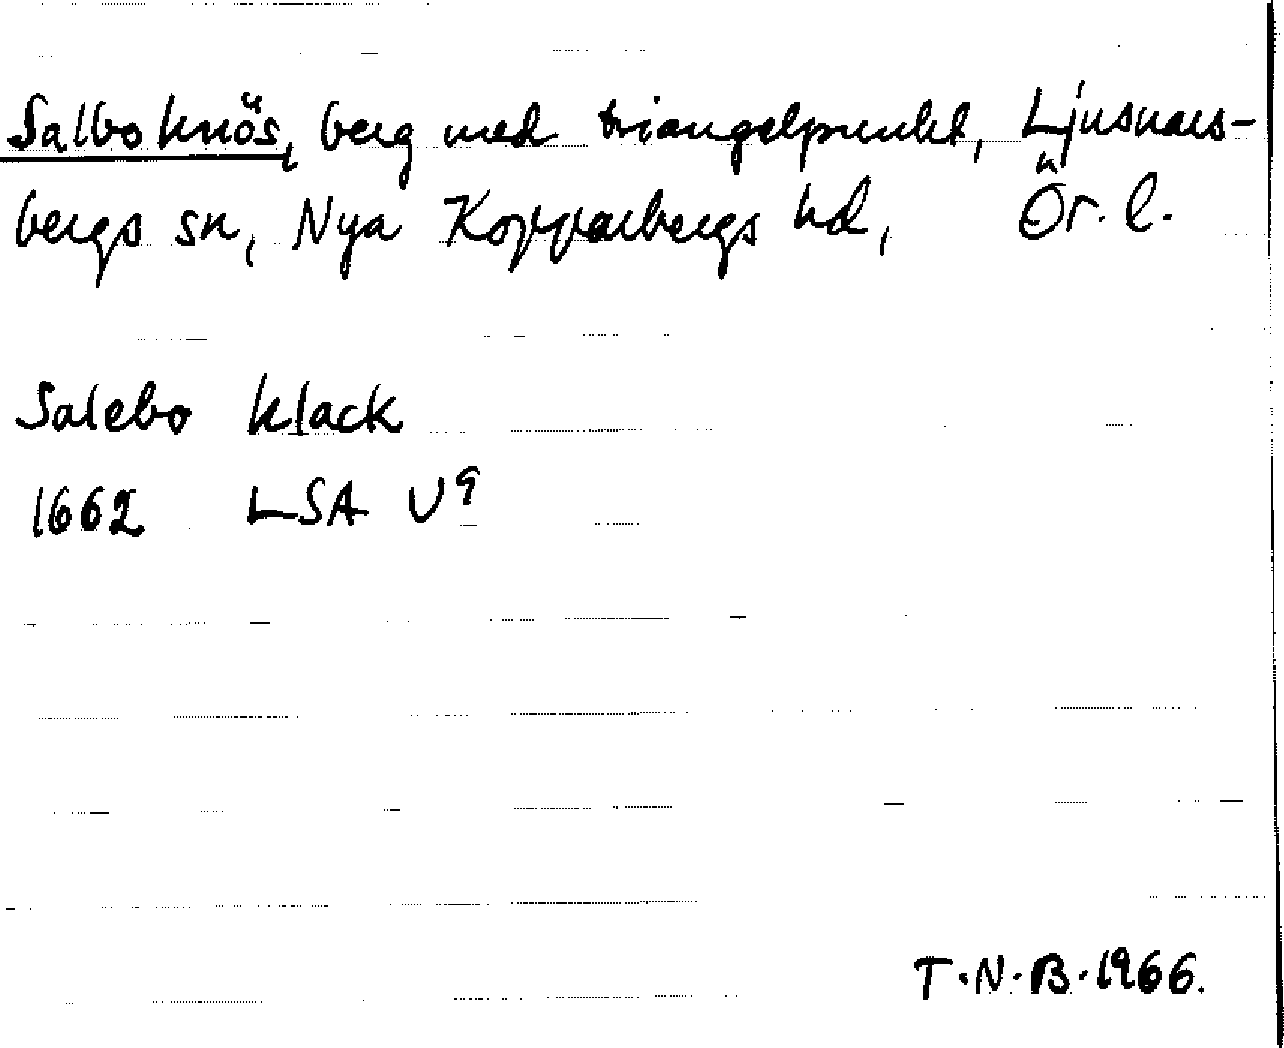 Salbo knös, berg med triangelpunkt, Ljusnars-
bergs sn, Nya Kopparbergs hd, Ör. l.
Salebo klack
1662 LSA U9
T.N.B.1966.